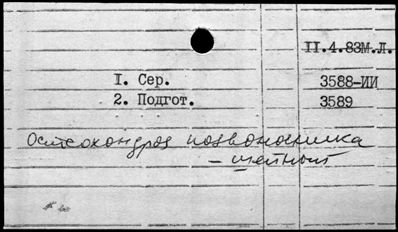 II.4.83М.Л.
I. Сер. 3588-ИИ
2. Подгот. 3589
Остеохондроз позвоночника
– шейный